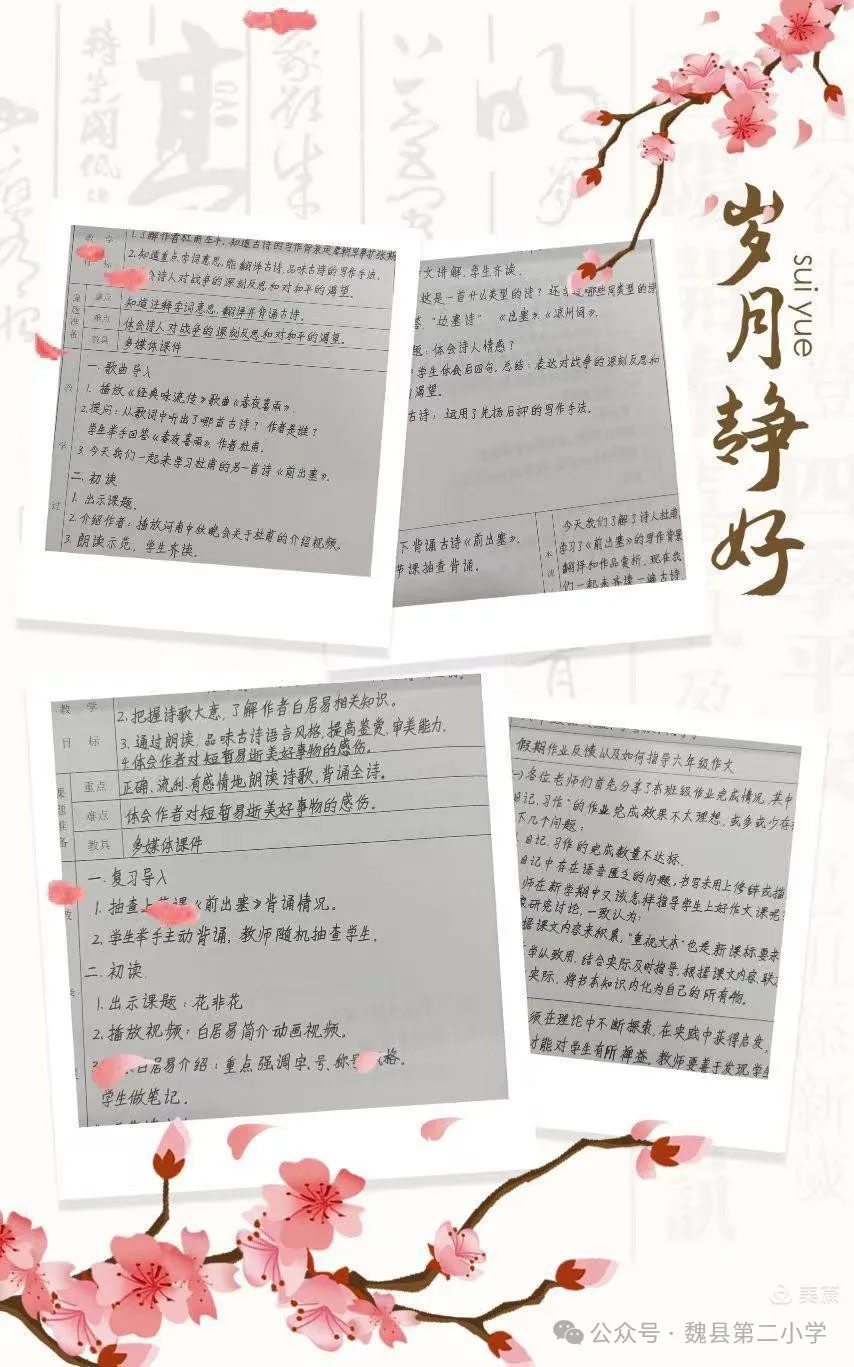 岁月静好
sui yue
教 学
目 标
1.了解作者杜甫生平,知道古诗的写作背景
2.知道重点字词意思,能翻译古诗,品味古诗的写作手法。
诗人对战争的深刻反思和对和平的渴望。
课题准备
重点
知道注释字词意思,翻译并背诵古诗。
难点
体会诗人对战争的深刻反思和对和平的渴望。
教具
多媒体课件
教 学 过
一.歌曲导入
1. 播放《经典咏流传》歌曲《春夜喜雨》.
2.提问:从歌词中听出了哪首古诗?作者是谁?
学生举手回答《春夜喜雨》.作者杜甫.
3.今天我们一起来学习杜甫的另一首诗《前出塞》.
二.初读
1.出示课题.
2.介绍作者:播放河南中秋晚会关于杜甫的介绍视频。
3.朗读示范,学生齐读.
文讲解,学生齐读.
这是一首什么类型的诗?还 哪些同类型的诗
答 "边塞诗" 《出塞》.《凉州词》.
题:体会诗人情感?
学生体会后四句,总结:表达对战争的深刻反思和
渴望。
古诗:运用了先扬后抑的写作手法.
下背诵古诗《前出塞》.
节课抽查背诵。
今天我们了解了诗人杜甫,
学习了《前出塞》的写作背景
翻译和作品赏析,现在我
们一起来齐读一遍古诗
教 学
目 标
2.把握诗歌大意,了解作者白居易相关知识。
3.通过朗读,品味古诗语言风格,提高鉴赏、审美能力.
4.体会作者对短暂易逝美好事物的感伤。
课题准备
重点
正确、流利、有感情地朗读诗歌,背诵全诗。
难点
体会作者对短暂易逝美好事物的感伤。
教具
多媒体课件
一.复习导入
1.抽查上节课《前出塞》背诵情况。
2.学生举手主动背诵,教师随机抽查学生.
二.初读
1.出示课题:花非花
2.播放视频:白居易简介动画视频。
白居易介绍:重点强调字、号、称号 格。
学生做笔记.
假期作业反馈以及如何指导六年级作文
一)各位老师们首先分享了本班级作业完成情况,其中
日记、习作"的作业完成效果不太理想,或多或少存在
下几个问题:
日记、习作的完成数量不达标.
日记中存在语言匮乏的问题,书写未用上修辞或描
师在新学期中又该怎样指导学生上好作文课呢?
研究讨论,一致认为:
据课文内容来积累,"重视文本"也是新课标要求
学从致用,结合实际及时指导,根据课文内容,联
实际,将书本知识内化为自己的所有物。
须在理论中不断探索,在实践中获得启发,
才能对学生有所裨益.教师要善于发现学生
美篇
公众号·魏县第二小学